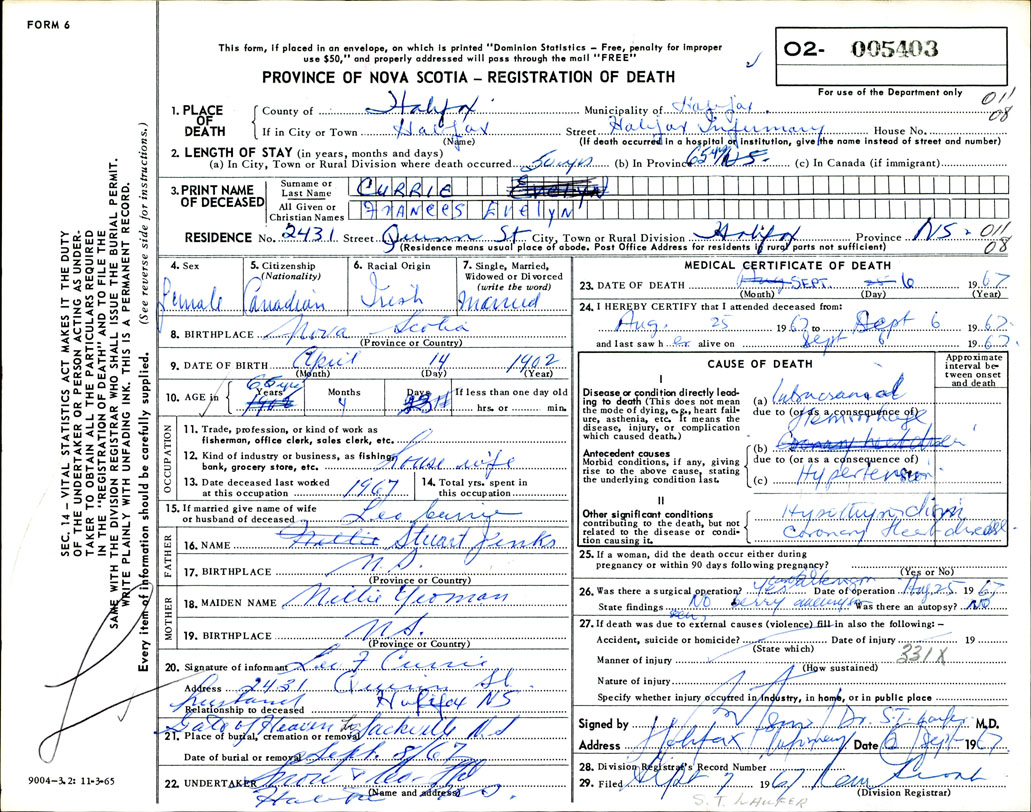 FORM 6
This form, if placed in an envelope, on which is printed "Dominion Statistics – Free, penalty for improper
use $50," and properly addressed will pass through the mail "FREE"
PROVINCE OF NOVA SCOTIA – REGISTRATION OF DEATH
02- 005403
For use of the Department only
011
08
1. PLACE OF DEATH
County of Halifax Municipality of Halifax
If in City or Town Halifax Street Halifax Infirmary House No.
(Name) (If death occurred in a hospital or institution, give the name instead of street and number)
2. LENGTH OF STAY (in years, months and days)
(a) In City, Town or Rural Division where death occurred 50 yrs (b) In Province 65 yrs NS. (c) In Canada (if immigrant)
3. PRINT NAME OF DECEASED
Surname or Last Name CURRIE Evelyn
All Given or Christian Names FRANCES EVELYN
RESIDENCE No. 2431 Street Quinn St City, Town or Rural Division Halifax Province NS. 011
08
(Residence means usual place of abode. Post Office Address for residents in rural parts not sufficient)
4. Sex
Female
5. Citizenship (Nationality)
Canadian
6. Racial Origin
Irish
7. Single, Married, Widowed or Divorced (write the word)
Married
8. BIRTHPLACE Nova Scotia
(Province or Country)
9. DATE OF BIRTH April 14 1902
(Month) (Day) (Year)
10. AGE in 65 yrs Years 1902 Months 4 Days
If less than one day old
hrs. or min.
OCCUPATION
11. Trade, profession, or kind of work as
fisherman, office clerk, sales clerk, etc.
12. Kind of industry or business, as fishing,
bank, grocery store, etc. House wife
13. Date deceased last worked
at this occupation 1967
14. Total yrs. spent in
this occupation
15. If married give name of wife
or husband of deceased Leo Currie
FATHER
16. NAME Stuart Jenks
17. BIRTHPLACE N.S.
(Province or Country)
MOTHER
18. MAIDEN NAME Nellie Yeoman
19. BIRTHPLACE N.S.
(Province or Country)
20. Signature of informant Leo F Currie
Address 2431 Quinn St.
husband Halifax NS
Relationship to deceased
Gate of Heaven Sackville NS
21. Place of burial, cremation or removal
Date of burial or removal Sept. 8/67
22. UNDERTAKER
(Name and address)
MEDICAL CERTIFICATE OF DEATH
23. DATE OF DEATH Aug SEPT. 25 6 1967
(Month) (Day) (Year)
24. I HEREBY CERTIFY that I attended deceased from:
Aug. 25 1967 to Sept 6 1967
and last saw her alive on Sept 6 1967.
CAUSE OF DEATH
Approximate interval between onset and death
I
Disease or condition directly leading to death (This does not mean the mode of dying, e.g., heart failure, asthenia, etc. It means the disease, injury, or complication which caused death.)
(a) Intracranial
due to (or as a consequence of)
Hemorrhage
Antecedent causes
Morbid conditions, if any, giving rise to the above cause, stating the underlying condition last.
(b)
due to (or as a consequence of)
(c) Hypertension
II
Other significant conditions
contributing to the death, but not related to the disease or condition causing it.
Coronary Heart disease
25. If a woman, did the death occur either during
pregnancy or within 90 days following pregnancy?
(Yes or No)
26. Was there a surgical operation? yes Date of operation Aug. 25 1967
State findings NO berry aneurysm Was there an autopsy? NO
seen
27. If death was due to external causes (violence) fill in also the following: –
Accident, suicide or homicide? Date of injury 19
(State which)
Manner of injury 331X
(How sustained)
Nature of injury
Specify whether injury occurred in industry, in home, or in public place
Signed by M.D.
Address Halifax Infirmary Date 6 Sept 1967
28. Division Registrar's Record Number
29. Filed Sept 7 1967
(Division Registrar)
S.T. LAUFER
SEC. 14 – VITAL STATISTICS ACT MAKES IT THE DUTY
OF THE UNDERTAKER OR PERSON ACTING AS UNDER-
TAKER TO OBTAIN ALL THE PARTICULARS REQUIRED
IN THE "REGISTRATION OF DEATH" AND TO FILE THE
SAME WITH THE DIVISION REGISTRAR WHO SHALL ISSUE THE BURIAL PERMIT.
WRITE PLAINLY WITH UNFADING INK. THIS IS A PERMANENT RECORD.
Every item of information should be carefully supplied. (See reverse side for instructions.)
9004–3.2: 11-3-65